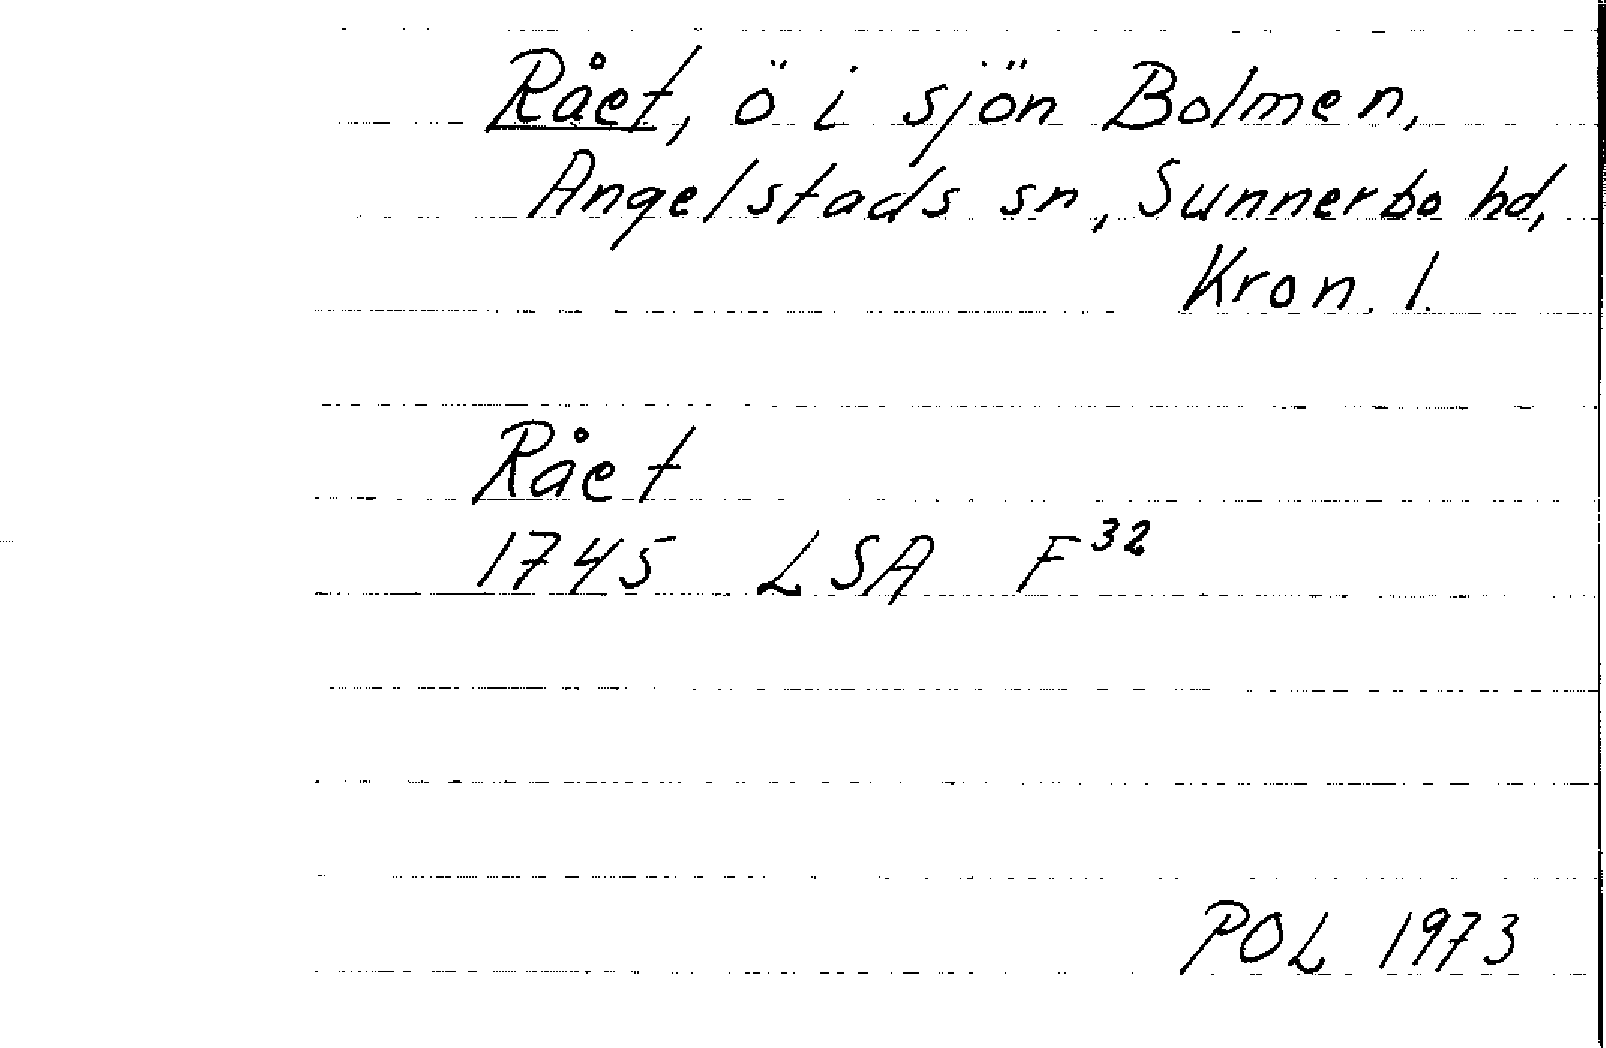 Rået, ö i sjön Bolmen,
Angelstads sn, Sunnerbo hd,
Kron. l.
Rået
1745 LSA F³²
POL 1973